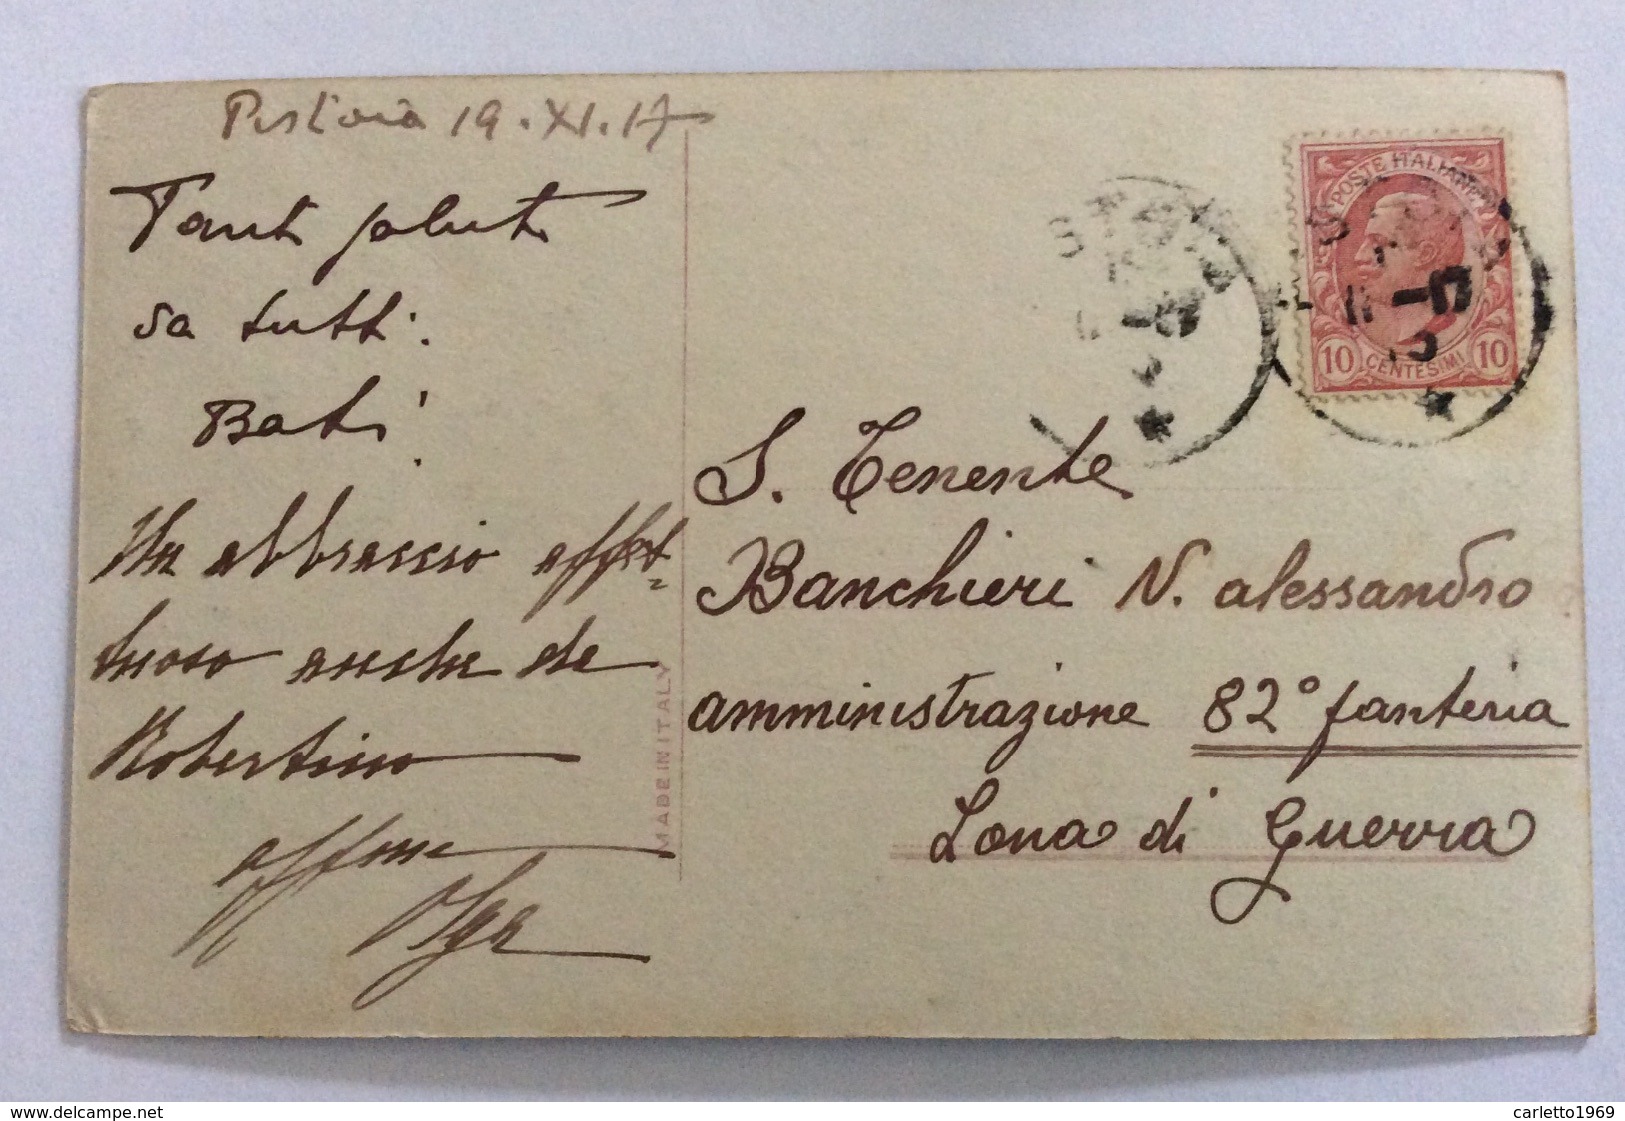 Pistoia 19.XI.17
Tanti saluti
da tutti.
Baci
Un abbraccio affet=
tuoso anche da
Robertino
affma
Olga
MADE IN ITALY
POSTE ITALIANE
10 CENTESIMI 10
S. Tenente
Banchieri N. Alessandro
amministrazione 82° fanteria
Zona di Guerra
www.delcampe.net
carletto1969